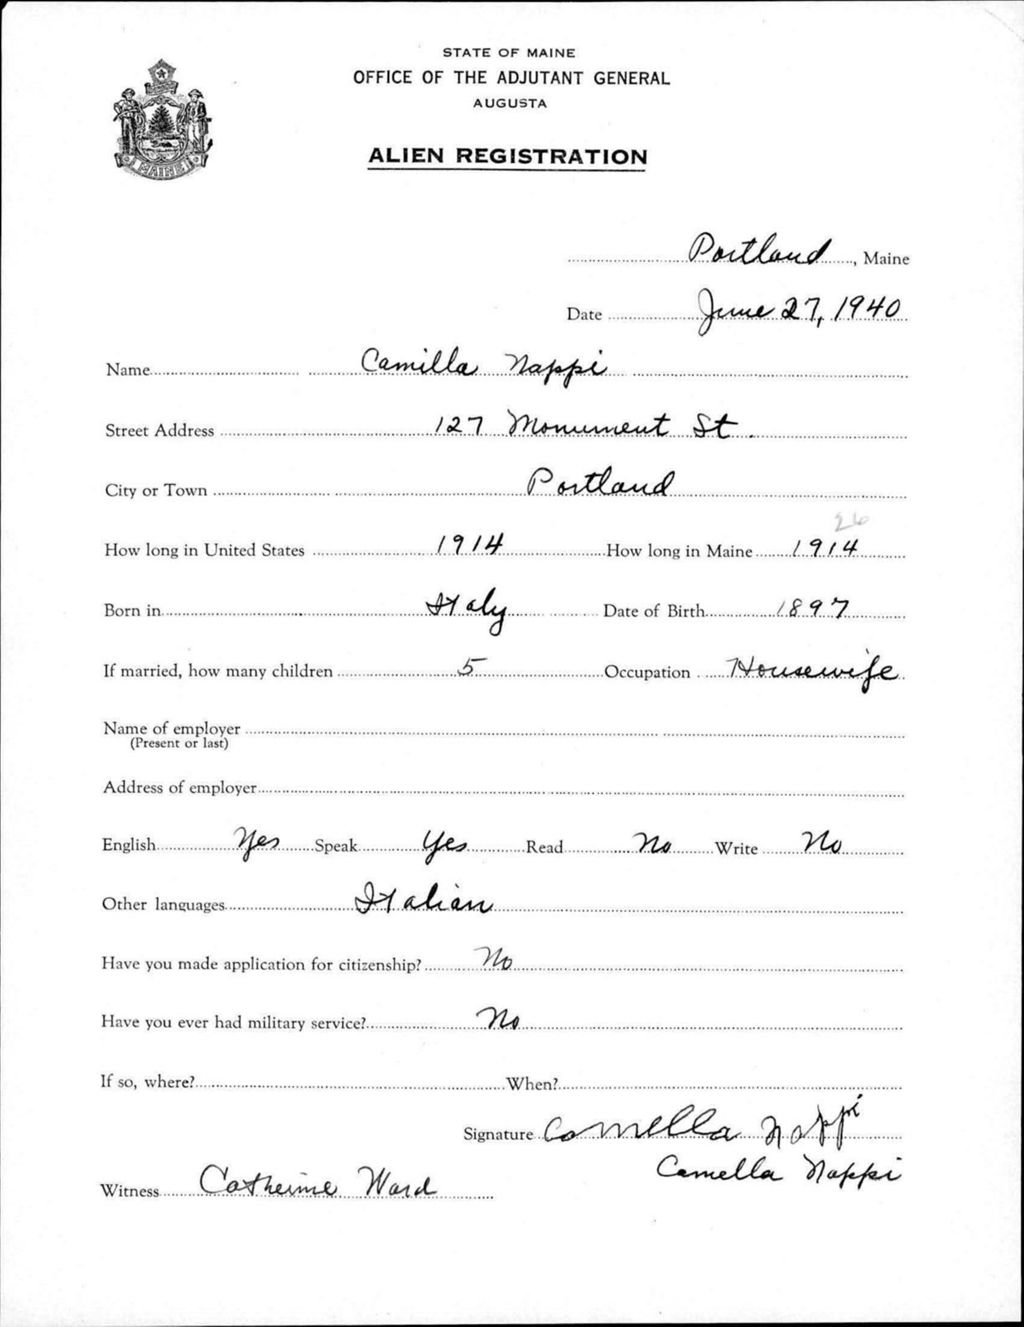 STATE OF MAINE
OFFICE OF THE ADJUTANT GENERAL
AUGUSTA
ALIEN REGISTRATION
MAINE
Portland, Maine
Date June 27, 1940
Name Camilla Nappi
Street Address 127 Monument St.
City or Town Portland
26
How long in United States 1914 How long in Maine 1914
Born in Italy Date of Birth 1897
If married, how many children 5 Occupation Housewife
Name of employer
(Present or last)
Address of employer
English Yes Speak Yes Read No Write No
Other languages Italian
Have you made application for citizenship? No
Have you ever had military service? No
If so, where? When?
Signature Camella Nappi
Camella Nappi
Witness Catherine Ward